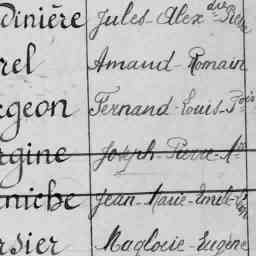 dinière Jules-Alex
rel Amand-Romain
geon Fernand-Louis-Fois
rgine Joseph-Pierre-A
niche Jean-Marie-Emile
rsier Magloire-Eugène